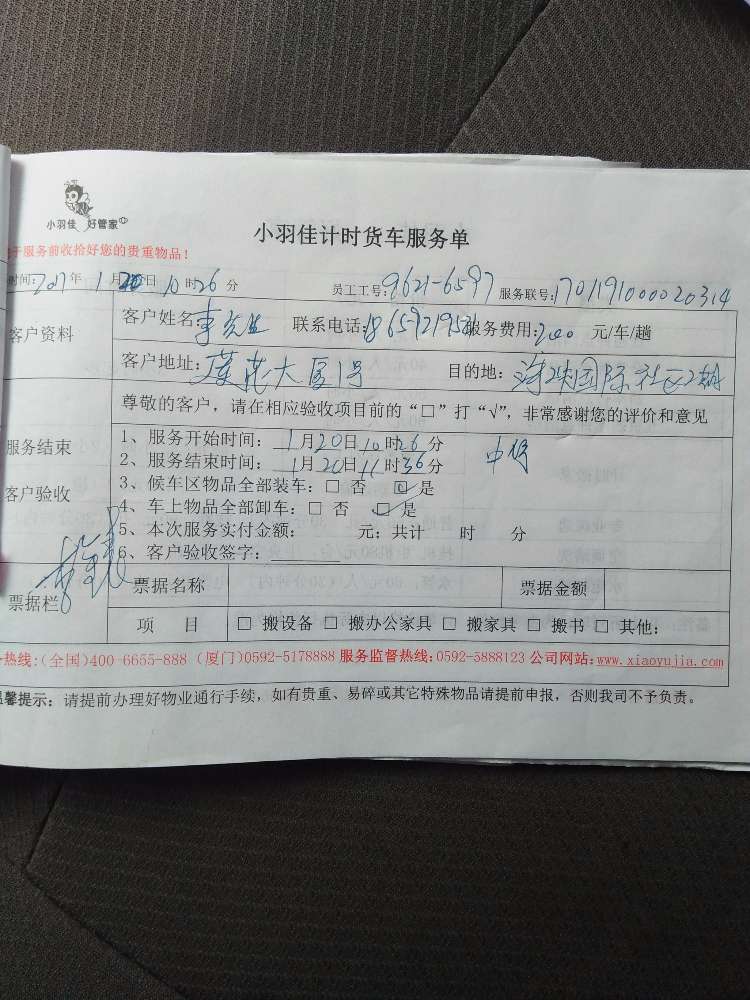 小羽佳 好管家
小羽佳计时货车服务单
于服务前收拾好您的贵重物品！
时间：2017年1月20日10时26分 员工工号：9621-6597 服务联号：1701191000020314
客户资料
客户姓名：李先生 联系电话： 服务费用：200 元/车/趟
客户地址：莲花大厦1号 目的地：海珠国际社区2期
尊敬的客户，请在相应验收项目前的“□”打“√”，非常感谢您的评价和意见
服务结束
客户验收
1、服务开始时间：1月20日10时26分
2、服务结束时间：1月20日11时36分
3、候车区物品全部装车：□ 否 ☑ 是
4、车上物品全部卸车：□ 否 ☑ 是
5、本次服务实付金额： 元；共计 时 分
6、客户验收签字：
票据栏
票据名称 票据金额
项 目 □ 搬设备 □ 搬办公家具 □ 搬家具 □ 搬书 □ 其他：
热线：(全国)400-6655-888 (厦门)0592-5178888 服务监督热线：0592-5888123 公司网站：www.xiaoyujia.com
温馨提示：请提前办理好物业通行手续，如有贵重、易碎或其它特殊物品请提前申报，否则我司不予负责。